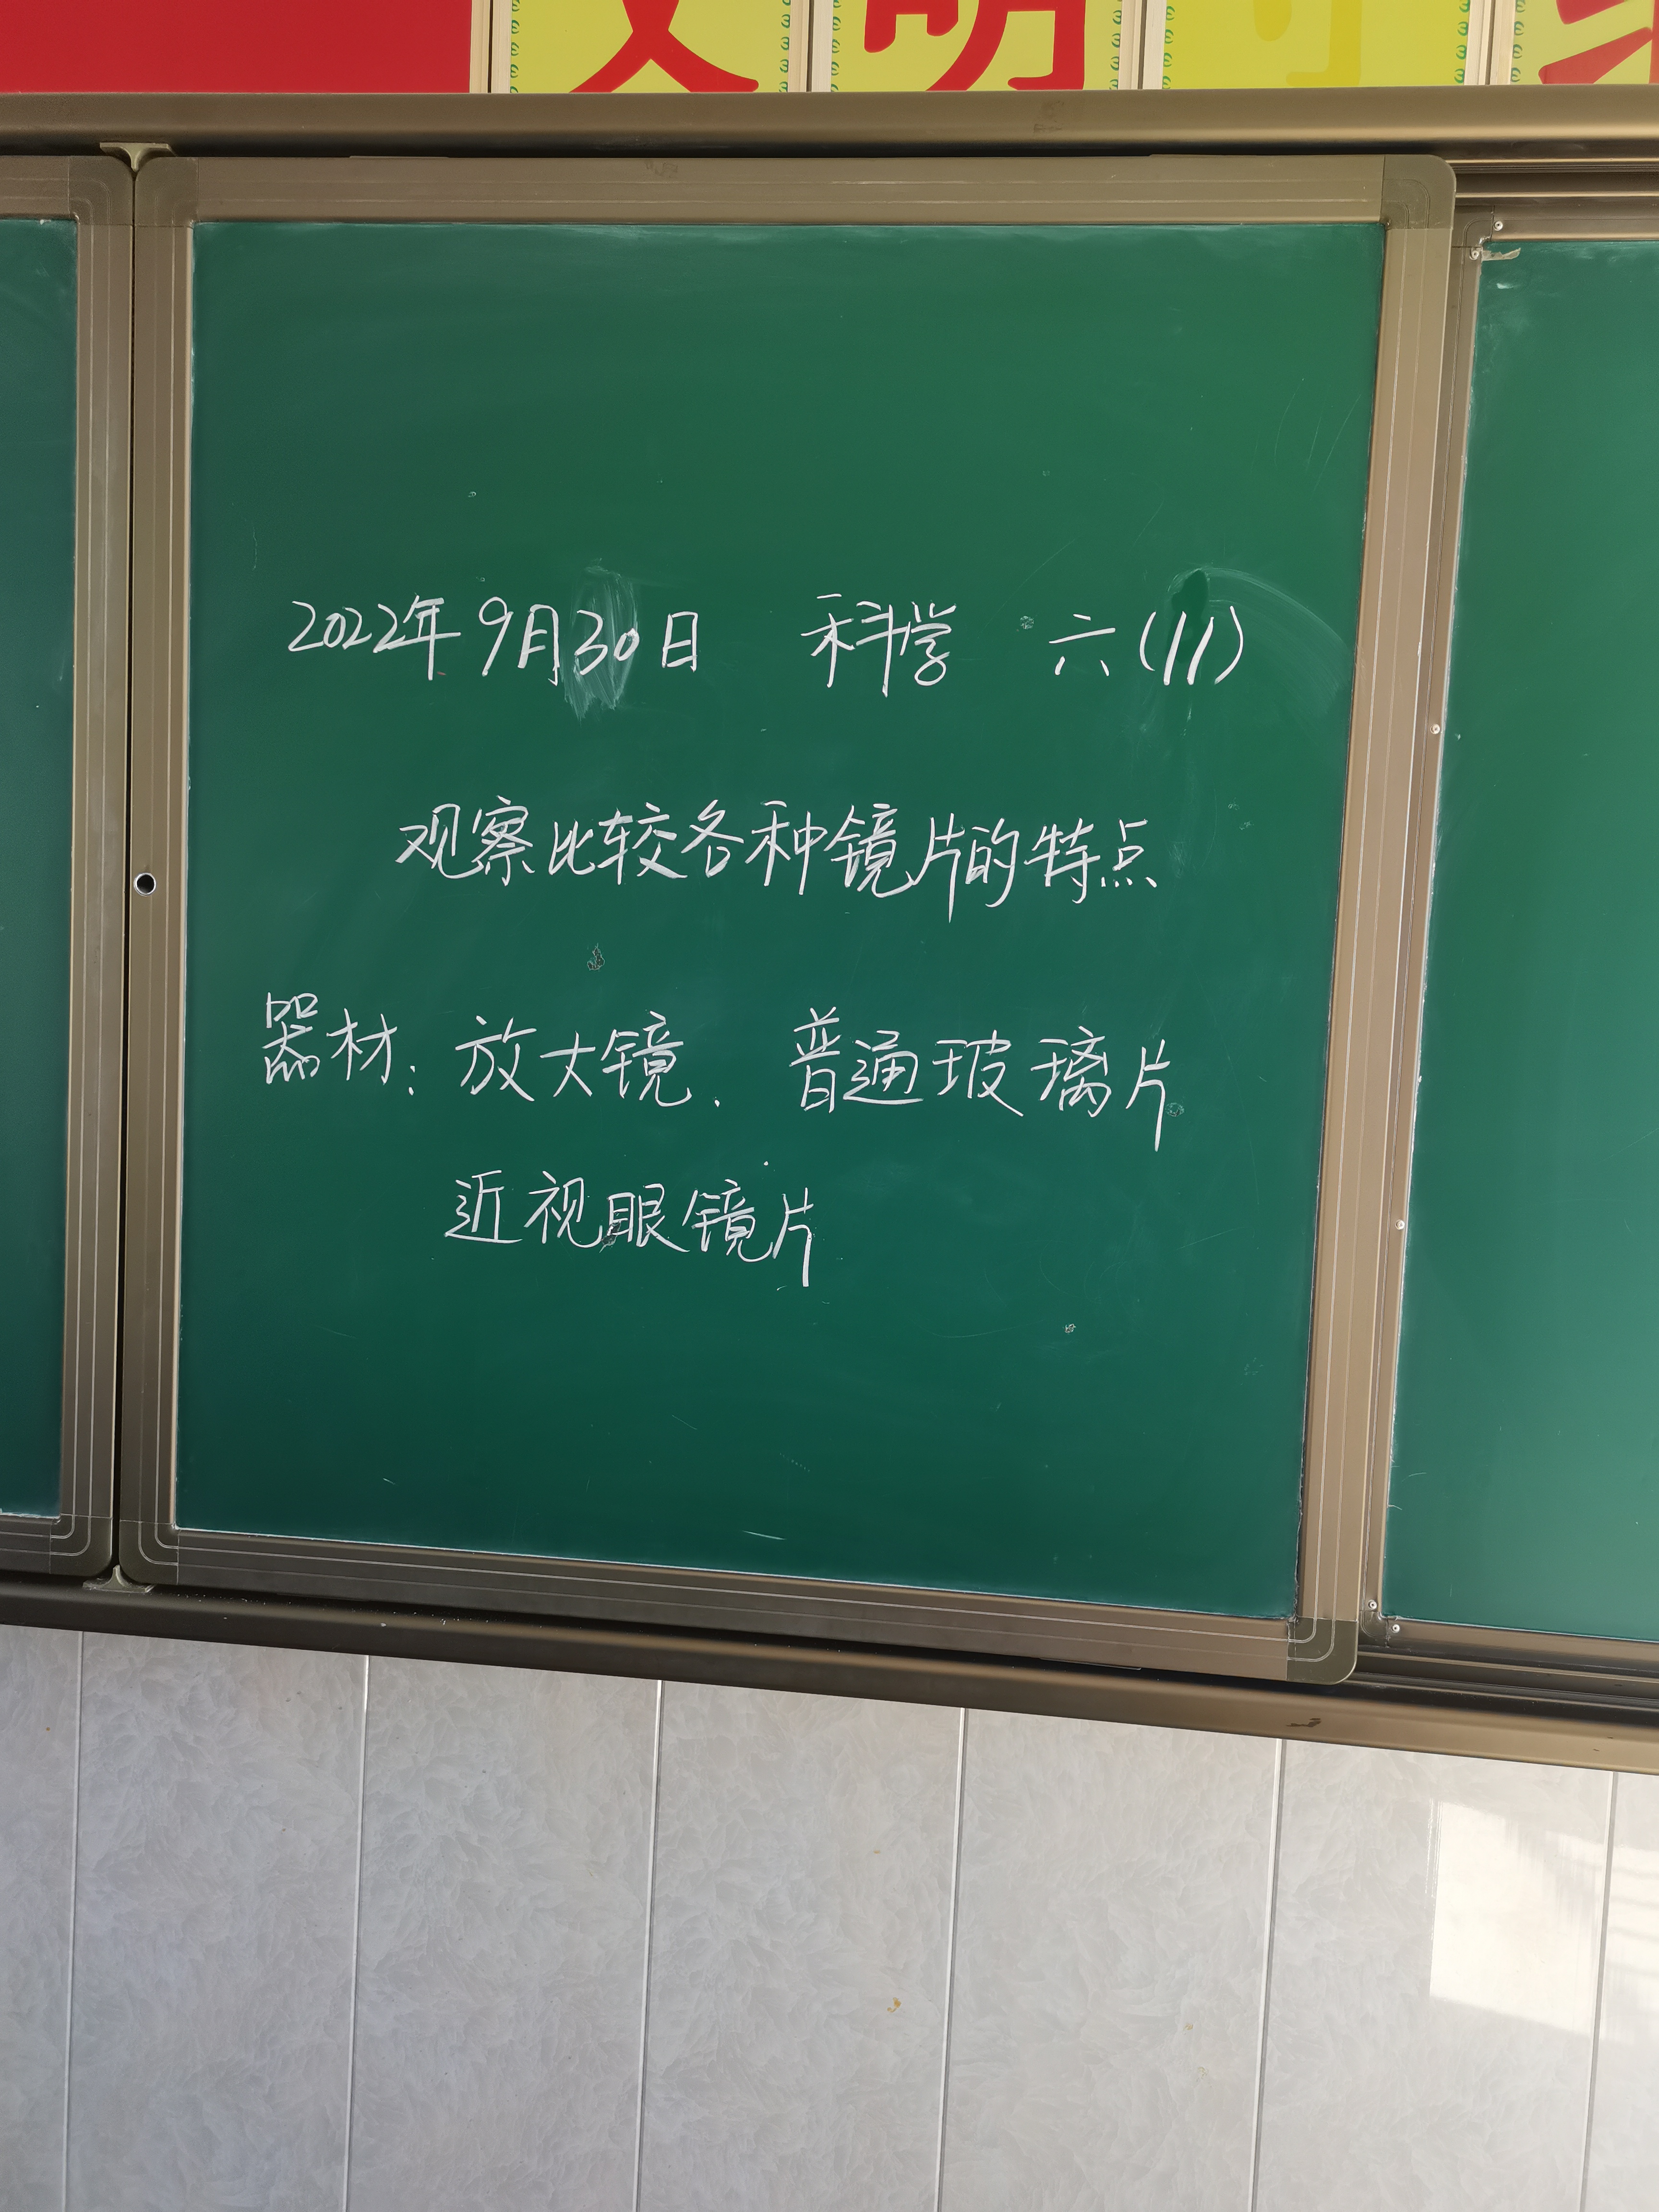 文明
2022年9月30日 科学 六(11)
观察比较各种镜片的特点
器材：放大镜．普通玻璃片
近视眼镜片